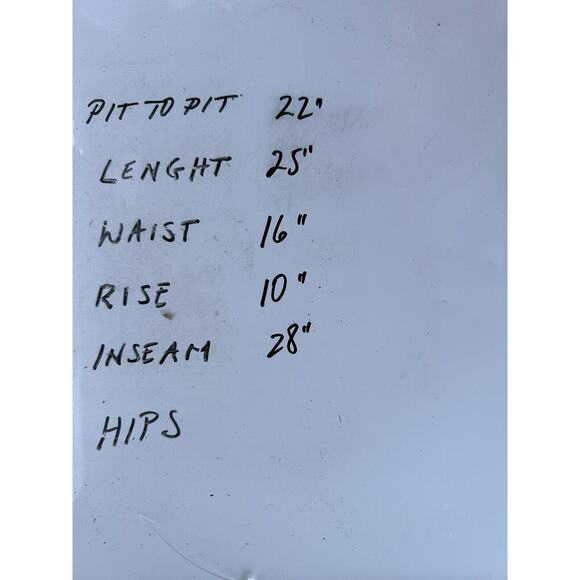 PIT TO PIT 22"
LENGHT 25"
WAIST 16"
RISE 10"
INSEAM 28"
HIPS